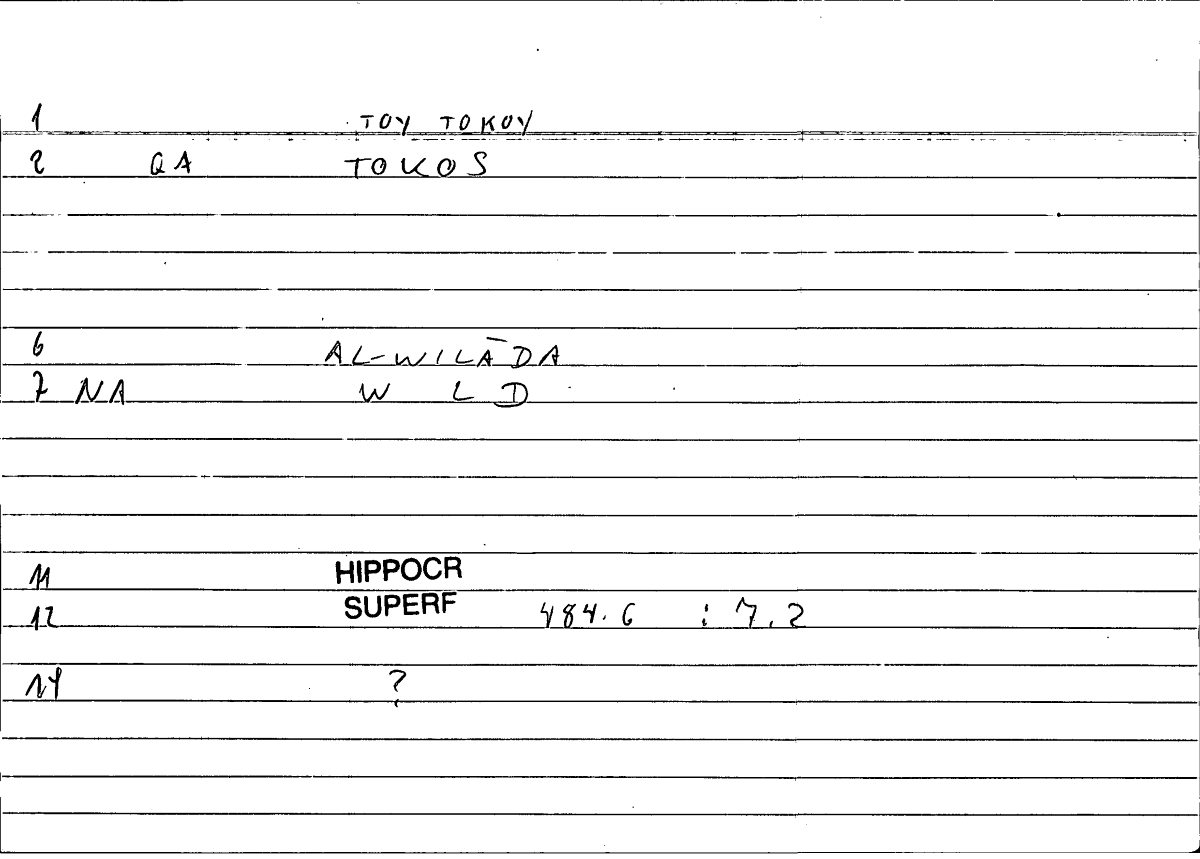 1 ΤΟΥ ΤΟΚΟΥ
2 QA TOKOS
6 AL-WILĀDA
7 NA W L D
11 HIPPOCR
12 SUPERF 484.6 : 7.2
14 ?